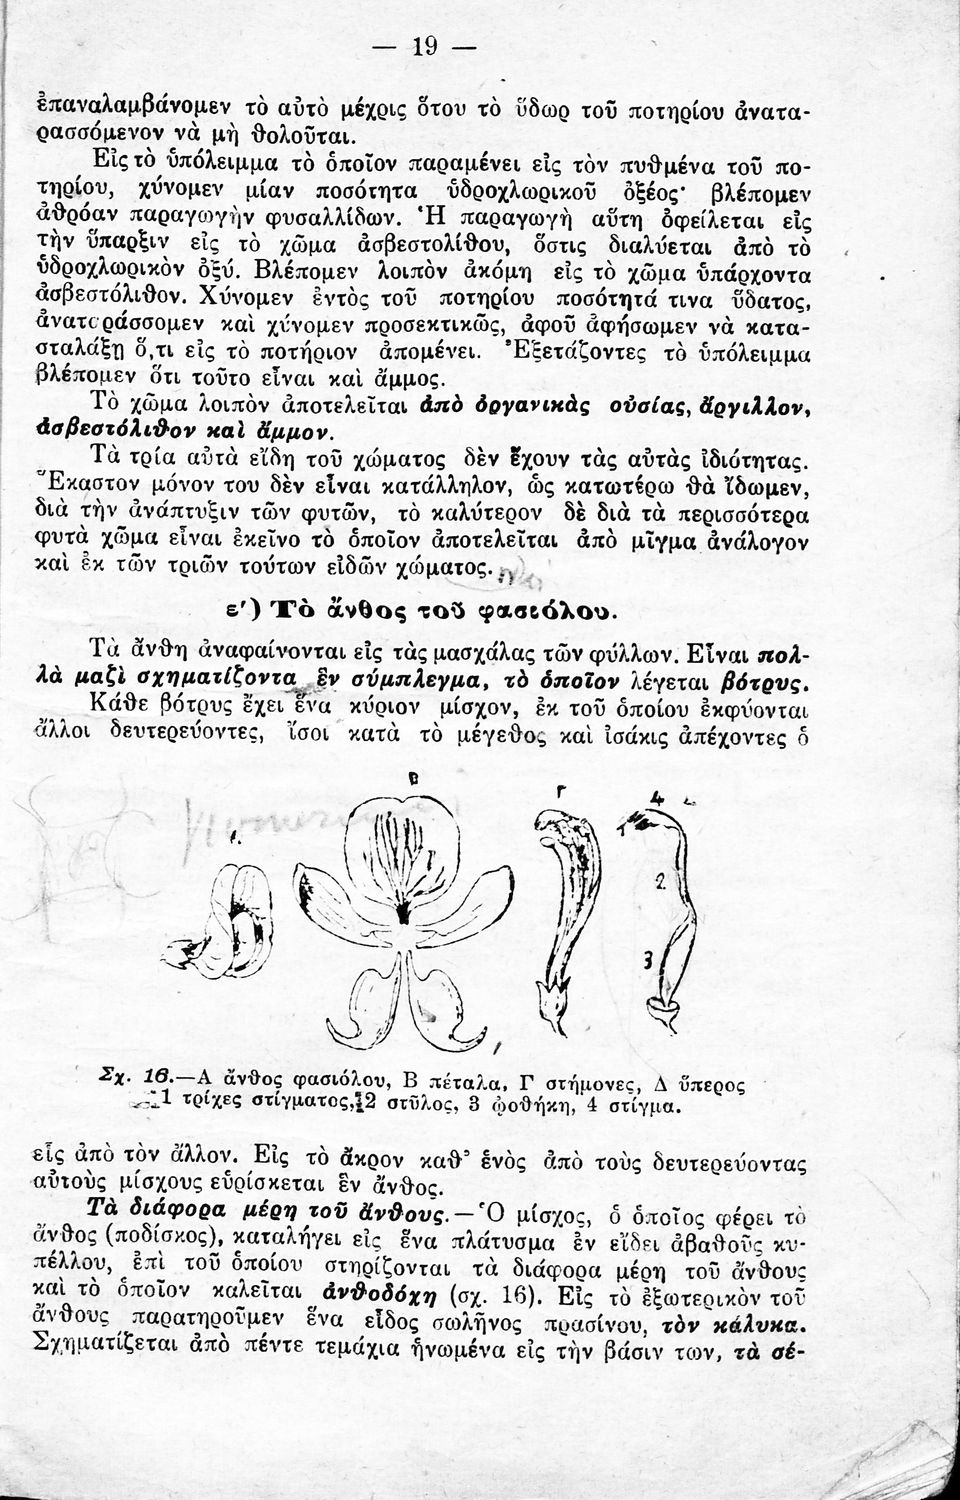 — 19 —
ἐπαναλαμβάνομεν τὸ αὐτὸ μέχρις ὅτου τὸ ὕδωρ τοῦ ποτηρίου ἀνατα-
ρασσόμενον νὰ μὴ θολοῦται.
Εἰς τὸ ὑπόλειμμα τὸ ὁποῖον παραμένει εἰς τὸν πυθμένα τοῦ πο-
τηρίου, χύνομεν μίαν ποσότητα ὑδροχλωρικοῦ ὀξέος· βλέπομεν
ἀθρόαν παραγωγὴν φυσαλλίδων. Ἡ παραγωγὴ αὕτη ὀφείλεται εἰς
τὴν ὕπαρξιν εἰς τὸ χῶμα ἀσβεστολίθου, ὅστις διαλύεται ἀπὸ τὸ
ὑδροχλωρικὸν ὀξύ. Βλέπομεν λοιπὸν ἀκόμη εἰς τὸ χῶμα ὑπάρχοντα
ἀσβεστόλιθον. Χύνομεν ἐντὸς τοῦ ποτηρίου ποσότητά τινα ὕδατος,
ἀναταράσσομεν καὶ χύνομεν προσεκτικῶς, ἀφοῦ ἀφήσωμεν νὰ κατα-
σταλάξῃ ὅ,τι εἰς τὸ ποτήριον ἀπομένει. Ἐξετάζοντες τὸ ὑπόλειμμα
βλέπομεν ὅτι τοῦτο εἶναι καὶ ἄμμος.
Τὸ χῶμα λοιπὸν ἀποτελεῖται ἀπὸ ὀργανικὰς οὐσίας, ἄργιλλον,
ἀσβεστόλιθον καὶ ἄμμον.
Τὰ τρία αὐτὰ εἴδη τοῦ χώματος δὲν ἔχουν τὰς αὐτὰς ἰδιότητας.
Ἕκαστον μόνον του δὲν εἶναι κατάλληλον, ὡς κατωτέρω θὰ ἴδωμεν,
διὰ τὴν ἀνάπτυξιν τῶν φυτῶν, τὸ καλύτερον δὲ διὰ τὰ περισσότερα
φυτὰ χῶμα εἶναι ἐκεῖνο τὸ ὁποῖον ἀποτελεῖται ἀπὸ μῖγμα ἀνάλογον
καὶ ἐκ τῶν τριῶν τούτων εἰδῶν χώματος.
ε′) Τὸ ἄνθος τοῦ φασιόλου.
Τὰ ἄνθη ἀναφαίνονται εἰς τὰς μασχάλας τῶν φύλλων. Εἶναι πολ-
λὰ μαζὶ σχηματίζοντα ἓν σύμπλεγμα, τὸ ὁποῖον λέγεται βότρυς.
Κάθε βότρυς ἔχει ἕνα κύριον μίσχον, ἐκ τοῦ ὁποίου ἐκφύονται
ἄλλοι δευτερεύοντες, ἴσοι κατὰ τὸ μέγεθος καὶ ἰσάκις ἀπέχοντες ὁ
Β
Γ
4
1
2
3
Σχ. 16.—Α ἄνθος φασιόλου, Β πέταλα, Γ στήμονες, Δ ὕπερος
1 τρίχες στίγματος, 2 στῦλος, 3 ᾠοθήκη, 4 στίγμα.
εἷς ἀπὸ τὸν ἄλλον. Εἰς τὸ ἄκρον καθ' ἑνὸς ἀπὸ τοὺς δευτερεύοντας
αὐτοὺς μίσχους εὑρίσκεται ἓν ἄνθος.
Τὰ διάφορα μέρη τοῦ ἄνθους.—Ὁ μίσχος, ὁ ὁποῖος φέρει τὸ
ἄνθος (ποδίσκος), καταλήγει εἰς ἕνα πλάτυσμα ἐν εἴδει ἀβαθοῦς κυ-
πέλλου, ἐπὶ τοῦ ὁποίου στηρίζονται τὰ διάφορα μέρη τοῦ ἄνθους
καὶ τὸ ὁποῖον καλεῖται ἀνθοδόχη (σχ. 16). Εἰς τὸ ἐξωτερικὸν τοῦ
ἄνθους παρατηροῦμεν ἕνα εἶδος σωλῆνος πρασίνου, τὸν κάλυκα.
Σχηματίζεται ἀπὸ πέντε τεμάχια ἡνωμένα εἰς τὴν βάσιν των, τὰ σέ-